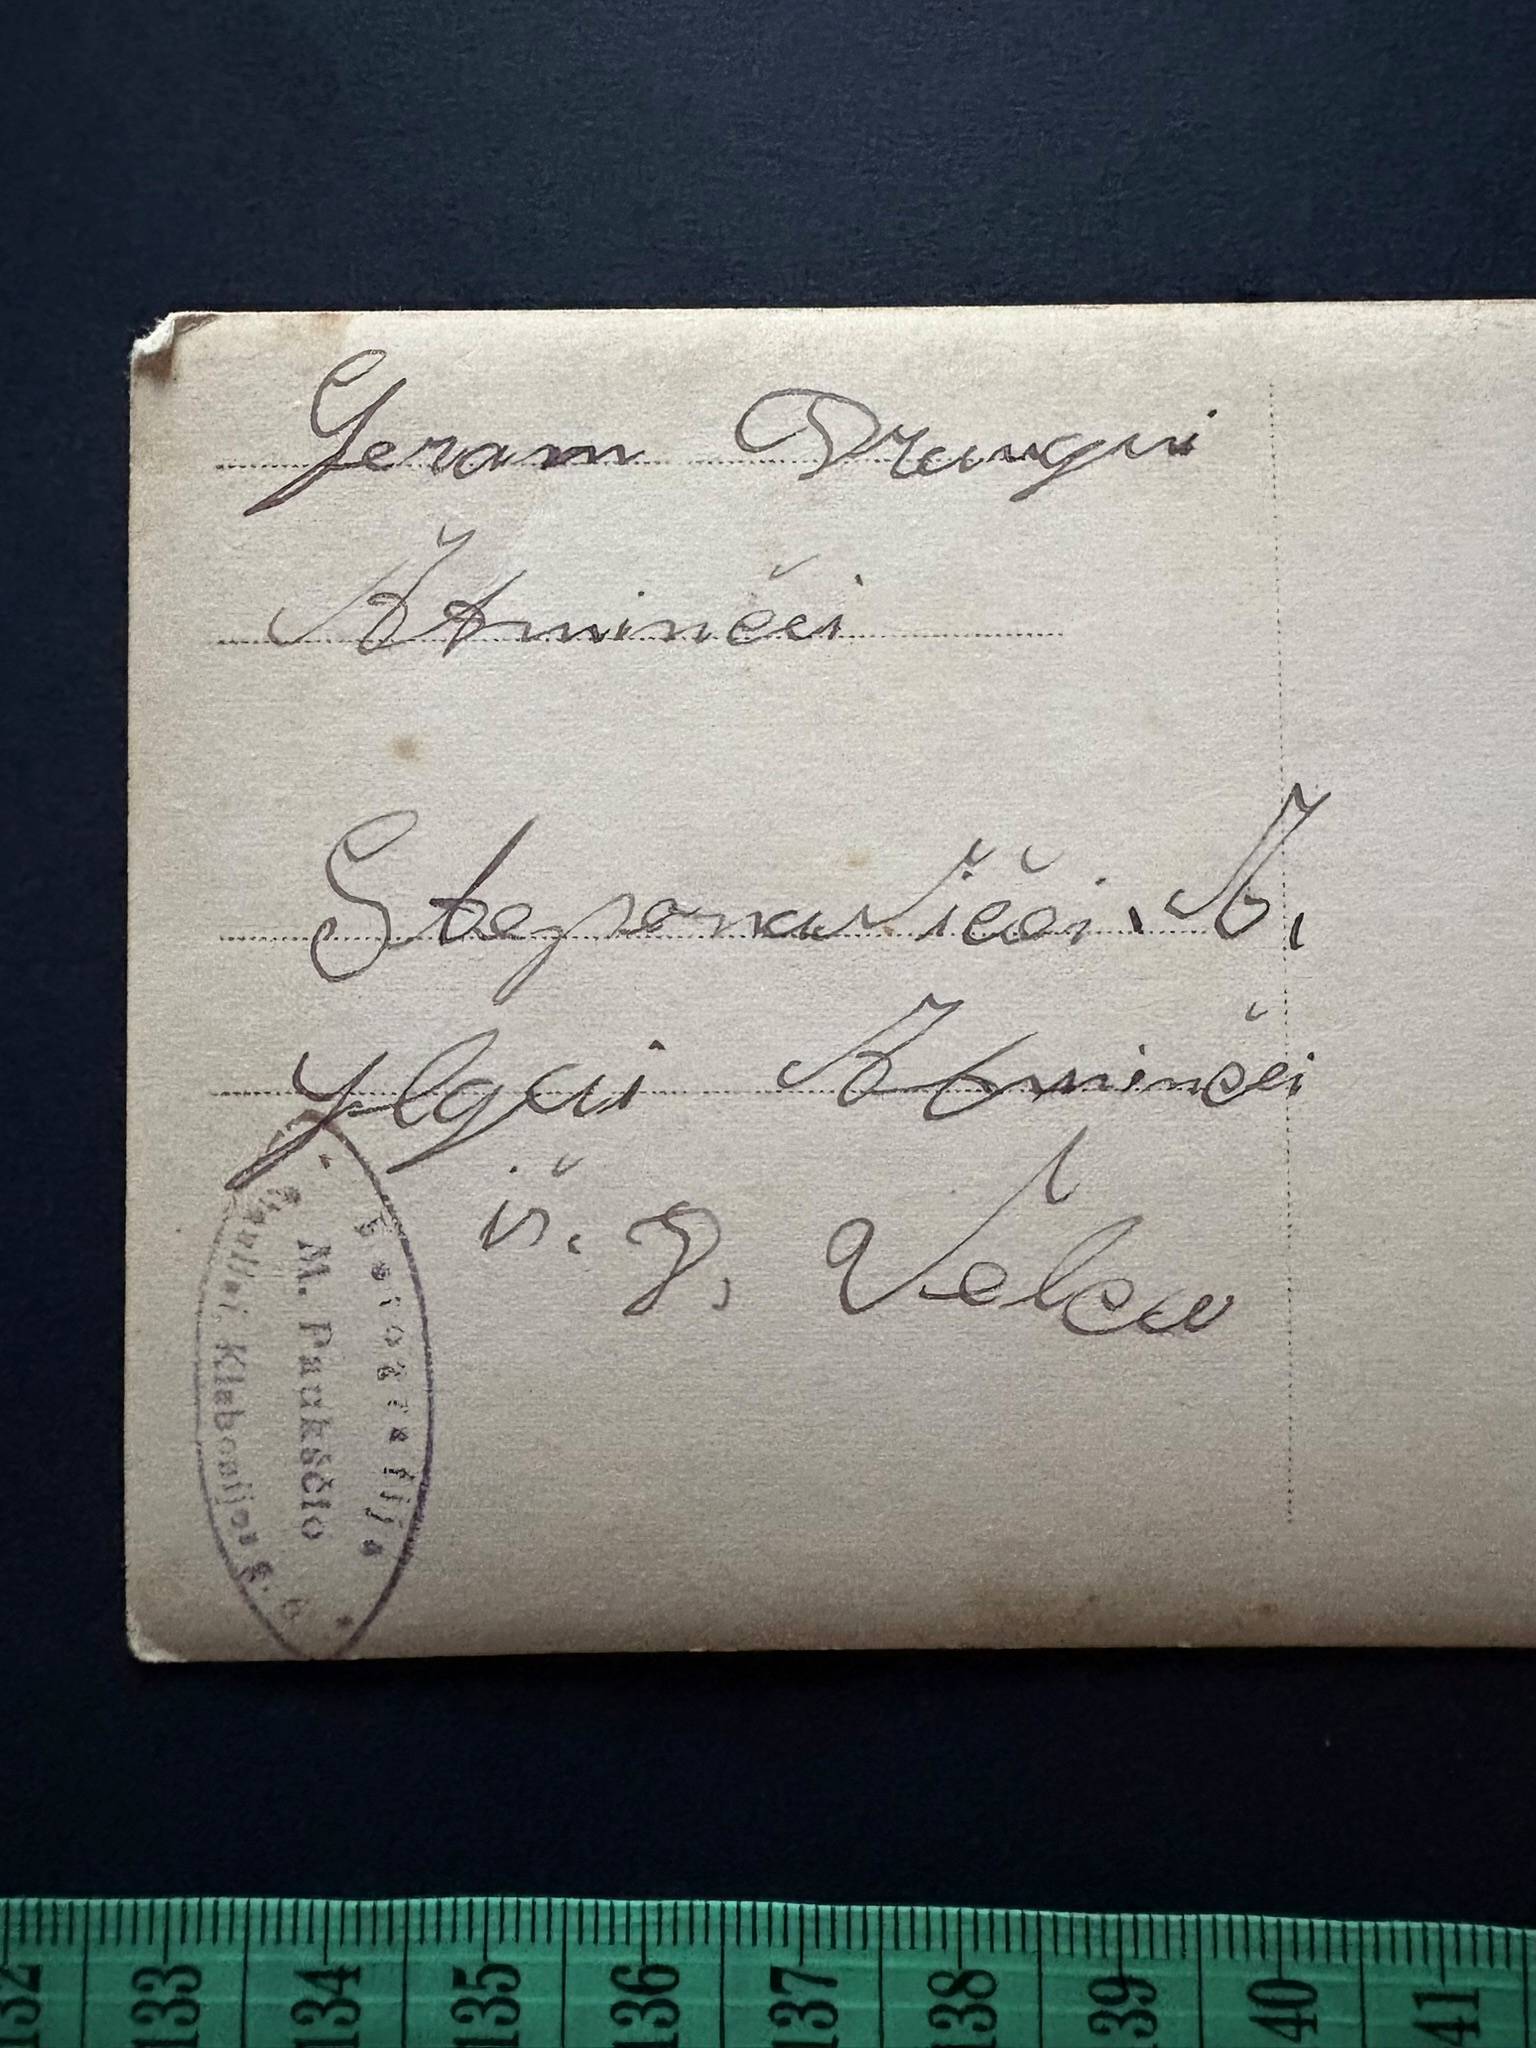 Geram Draugui
Atminčei
Steponavičei. A,
Ylgai Atminčei
iš. J, Velew
Fotografija
M. Paukščio
Šiauliai, Klebonijos g. 6
132 133 134 135 136 137 138 139 140 141